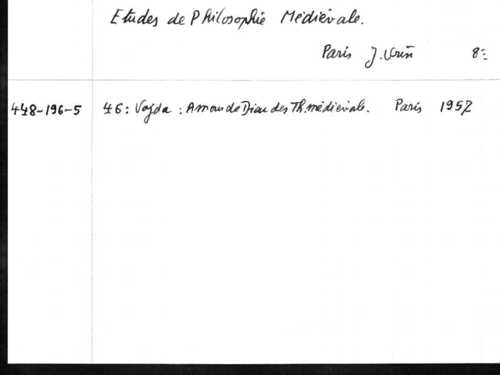 Etudes de Philosophie Médiévale.
Paris J. Vrin 8=
448-196-5 46: Vajda: Amour de Dieu des Th. médiévale. Paris 1957